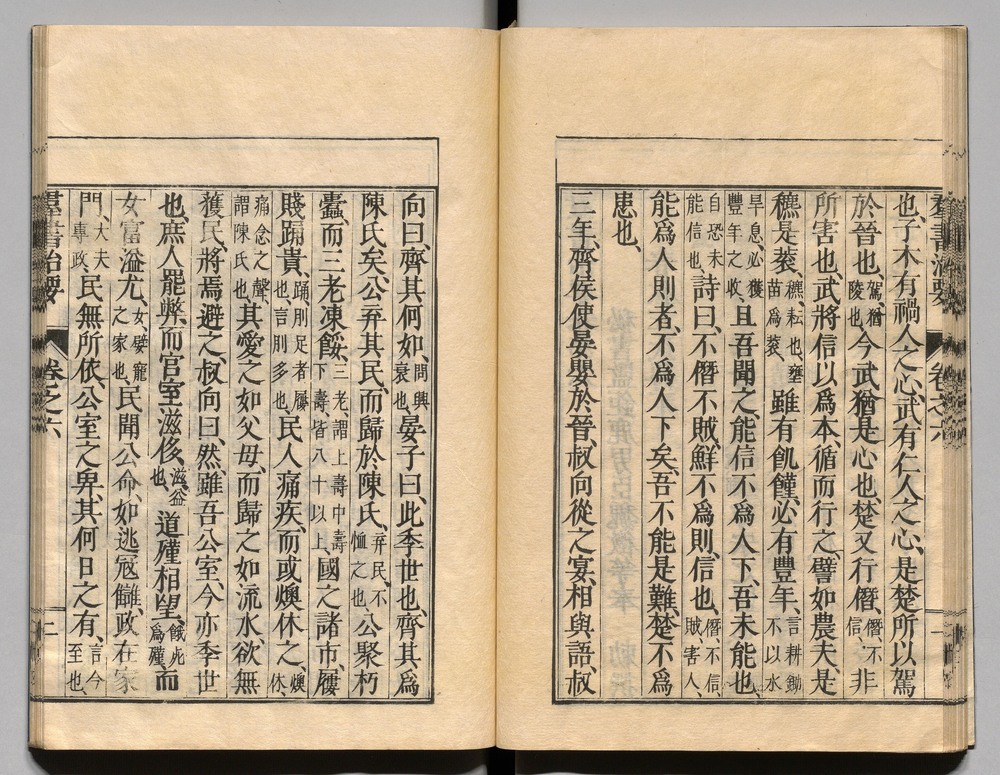 羣書治要 卷之六 一
也、子木有禍人之心、武有仁人之心、是楚所以駕
於晉也、駕、猶陵也、今武猶是心也、楚又行僭、僭、不信、非
所害也、武將信以爲本、循而行之、譬如農夫、是
穮是蔉、穮、耘也、壅苗爲蔉、雖有飢饉、必有豐年、言耕鋤不以水
旱息、必獲豐年之收、且吾聞之、能信不爲人下、吾未能也、
自恐未能信也、詩曰、不僭不賊、鮮不爲則、信也、僭、不信、賊害人、
能爲人則者、不爲人下矣、吾不能是難、楚不爲
患也、
三年、齊侯使晏嬰於晉、叔向從之宴、相與語、叔
向曰、齊其何如、問興衰也、晏子曰、此季世也、齊其爲
陳氏矣、公弃其民、而歸於陳氏、弃民、不恤之也、公聚朽
蠹、而三老凍餒、三老、謂上壽中壽下壽、皆八十以上、國之諸市、屨
賤踊貴、踊、刖足者屨也、言刖多也、民人痛疾、而或燠休之、燠休、
痛念之聲、謂陳氏也、其愛之如父母、而歸之如流水、欲無
獲民、將焉避之、叔向曰、然、雖吾公室、今亦季世
也、庶人罷弊、而官室滋侈、滋、益也、道殣相望、餓死爲殣、而
女富溢尤、女、嬖寵之家也、民聞公命、如逃冦讎、政在家
門、大夫專政、民無所依、公室之卑、其何日之有、言今至也、
羣書治要 卷之六 二